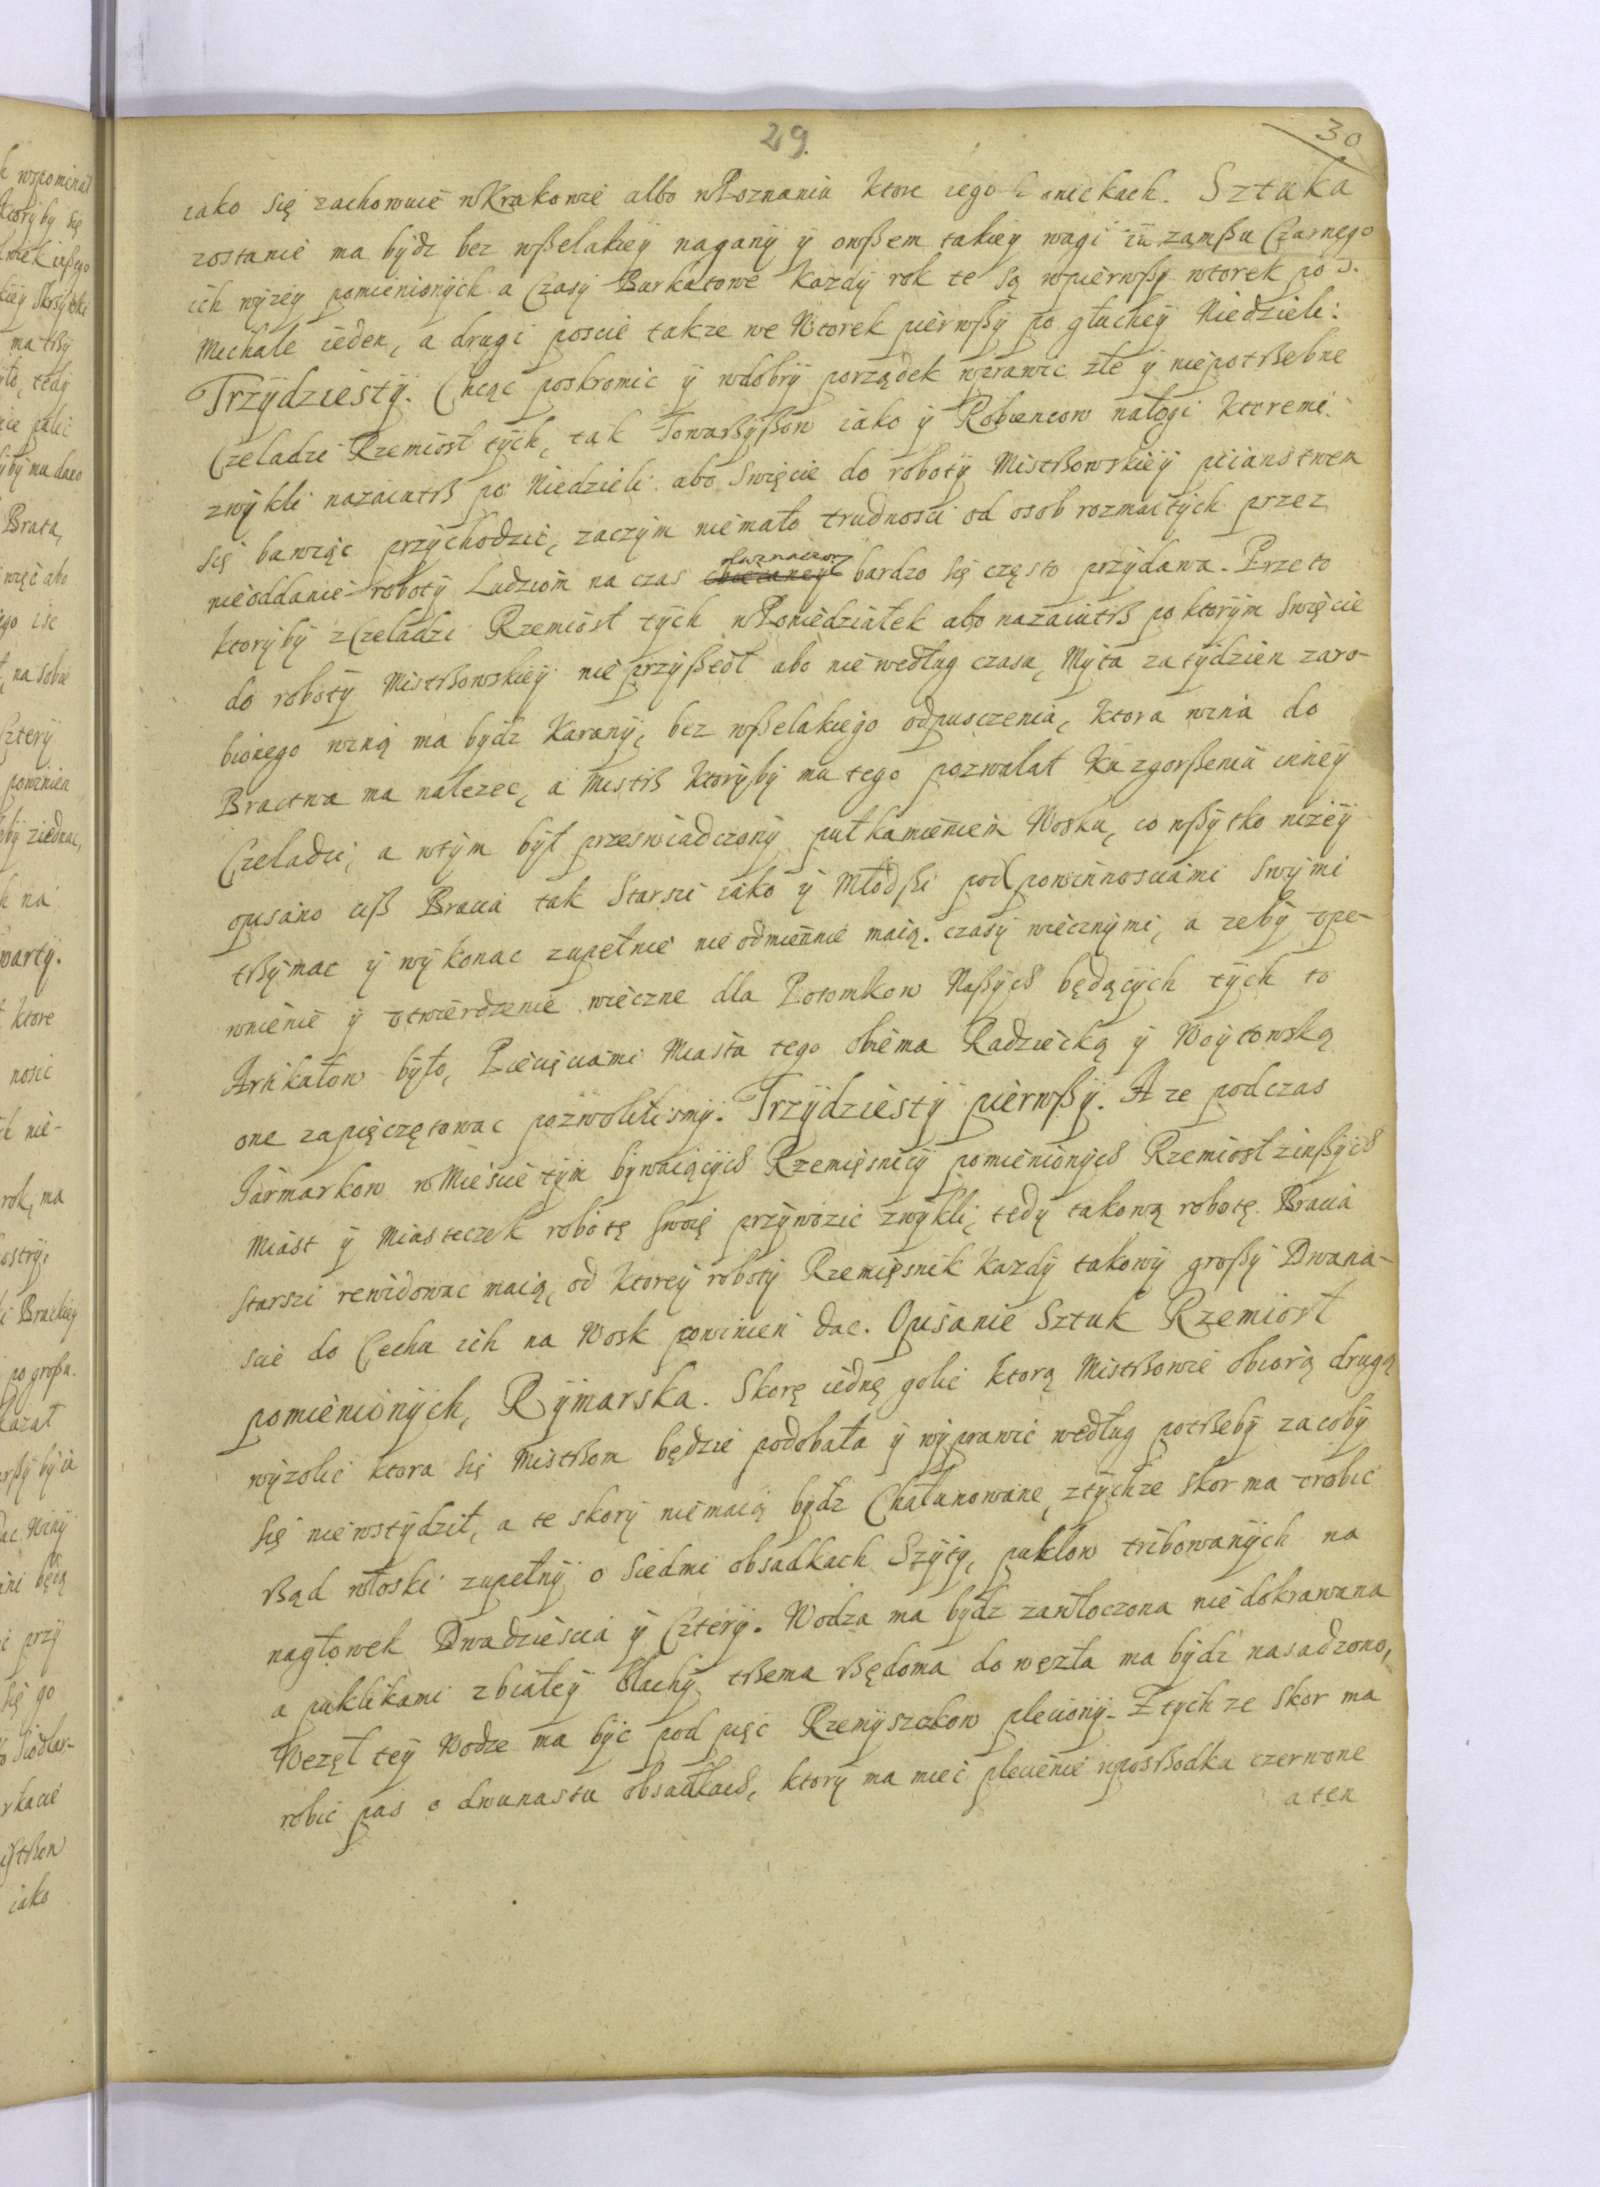 29.
30
iako się zachowuie w Krakowie albo w Poznaniu ktore iego Sztuka
zostanie ma bÿdz bez wßelakieÿ naganÿ ÿ owßem takieÿ wagi iu zamßu Czarnego
ich wÿzeÿ pomienionÿch a Czasÿ Barkatowe kazdÿ rok te są w pierwßÿ wtorek po S.
Michale ieden, a drugi poscie takze we Wtorek pierwßÿ po głucheÿ Niedzieli:
Trzÿdziestÿ. Chcąc poskromic ÿ w dobrÿ porządek wprawic złe ÿ niepotrßebne
Czeladzi Rzemiosł tÿch, tak Towarßÿßow iako ÿ Robiencow nałogi ktoremi
zwÿkli nazaiutrß po Niedzieli abo Swięcie do robotÿ Mistrßowskieÿ piianstwem
się bawiąc przÿchodzic, zaczÿm niemało trudnosci od osob rozmaitÿch przez
nieoddanie robotÿ Ludziom na czas bardzo się często przÿdawa. Przeto
ktorÿbÿ z Czeladzi Rzemiosł tÿch w Poniedziałek abo nazaiutrß po ktorÿm Swięcie
do robotÿ Mistrßowskieÿ nie przÿßedł abo nie według czasu, Mÿta za tÿdzien zaro-
bionego winą ma bÿdz karanÿ, bez wßelakiego odpusczenia, ktora wina do
Bractwa ma nalezec, a Mistrß ktorÿbÿ mu tego pozwalał ku zgorßeniu inneÿ
Czeladzi, a w tÿm bÿł przeswiadczonÿ puł kamieniem Wosku, co wßÿtko nizeÿ
opisano ciß Bracia tak Starszi iako ÿ Młodßi pod powinnosciami swÿmi
trßÿmac ÿ wÿkonac zupełnie nieodmiennie maią. czasÿ wiecznÿmi, a zebÿ upe-
wnienie ÿ utwierdzenie wieczne dla Potomkow Naßÿch będącÿch tÿch to
Artikułow bÿło, Pieczęciami Miasta tego obiema Radziecką ÿ Woÿtowską
one zapięczętowac pozwolilismÿ. Trzÿdziestÿ pierwßÿ. A ze podczas
Jarmarkow w Miescie tÿm bÿwaiącÿch Rzemięsnicÿ pomienionÿch Rzemiosł z inßÿch
Miast ÿ Miasteczek robotę swoię przÿwozic zwÿkli, tedÿ takową robotę Bracia
starszi rewidowac maią, od ktoreÿ robotÿ Rzemięsnik kazdÿ takowÿ großÿ Dwana-
scie do Cechu ich na Wosk powinien dac. Opisanie Sztuk Rzemiosł
pomienionÿch, Rÿmarska. Skorę iednę golic ktorą Mistrßowie obiorą drugą
wÿzolic ktora się Mistrßom będzie podobała ÿ wÿprawic według potrßebÿ zacobÿ
się nie wstÿdził, a te skorÿ nie maią bÿdz Chałunowane, z tÿchze skor ma urobic
Rßąd włoski zupełnÿ o siedmi obsadkach Szÿtÿ, puklow tribowanÿch na
nagłowek Dwadziescia ÿ Cterÿ. Wodza ma bÿdz zawłoczona nie dokrawana
a puklikami z białeÿ blachÿ trßema Rßędoma do węzła ma bÿdz nasadzono,
Wezęł teÿ Wodze ma bÿc pod pięc Rzemÿszczkow pleconÿ. Z tÿchze skor ma
robic pas o dwunastu obsadkach, ktorÿ ma miec plecienie w posrßodku czerwone
a ten